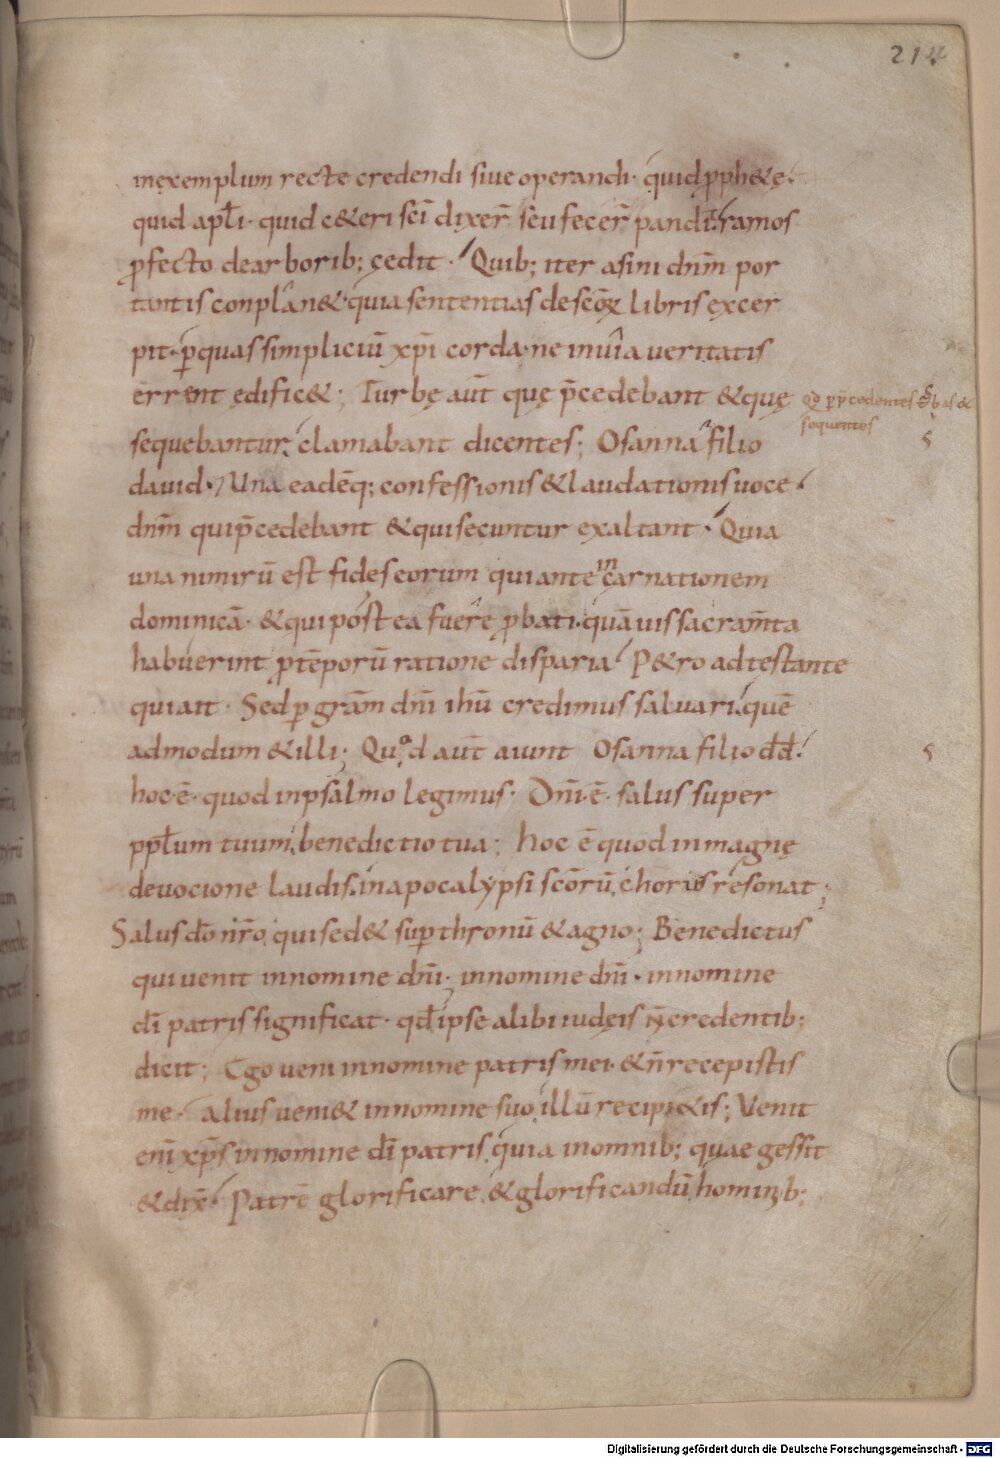 214
inexemplum recte credendi siue operandi· quid ꝓph&ę·
quid apłi· quid c&eri sc̄i dixer̄ seu fecer̄ pandit̄· ramos
ꝓfecto dearborib; cędit · Quib; iter asini dn̄m por
tantis conplan&· quia sententias descōꝝ libris excer
pit· ꝑquas simpliciū xp̄i corda· ne inuia ueritatis
errent ędific&; Turbę aut̄ quę p̄cedebant &quę
sequebantur· clamabant dicentes; Osanna filio
dauid· Una eadēq; confessionis &laudationis uoce·
dn̄m quip̄cedebant &quisecuntur exaltant· Quia
una nimirū est fides eorum quiante incarnationem
dominicā· &qui postea fuere ꝓbati· quāuis sacram̄ta
habuerint ꝓtēporū ratione disparia· P&ro adtestante
quiait · Sed ꝑ grām dn̄i ihū credimus saluari· quē
admodum &illi; Quod aut̄ aiunt Osanna filio dd̄·
hoc·ē· quod inpsalmo legimus· Dn̄i·ē· salus super
pp̄lum tuum· benedictio tua; hoc ē quod inmagnę
deuocione laudis· in apocalypsi scōrū· chorus resonat;
Salus dō nr̄o· qui sed& suꝑ thronū &agno; Benedictus
qui uenit innomine dn̄i· innomine dn̄i· innomine
dī patris significat· qd̄ ipse alibi iudęis n̄ credentib;
dicit; Ego ueni innomine patris mei· &n̄ recepistis
me· alius ueni& innomine suo· illū recipi&is; Venit
enī xp̄s innomine dī patris· quia inomnib; quae gessit
&dix̄· Patrē glorificare· &glorificandū hominib;
sequentes